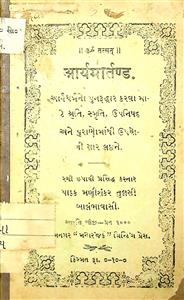 ॥ ૐ तत्सत् ॥
आर्यमार्तण्ड.
આર્યધર્મનો પુનરુદ્ધાર કરવા મા-
ટે શ્રુતિ, સ્મૃતિ, ઉપનિષદ્
અને પુરાણોમાંથી ઉપયો-
ગી સાર લઇને.
રચી છપાવી પ્રસિદ્ધ કરનાર
પાઠક મણીશંકર તુળસી
બાલંભાવાસી.
પ્રત ૧૦૦૦
પ્રિન્ટિંગ પ્રેસ.
કિમ્મત રૂા. ૦-૧૦-૦